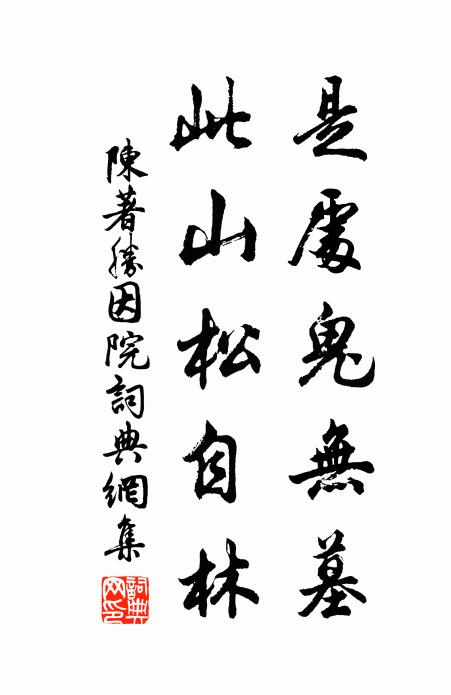 是處鬼無墓
此山松自林
陳著勝因院詞典網集
詞典網印